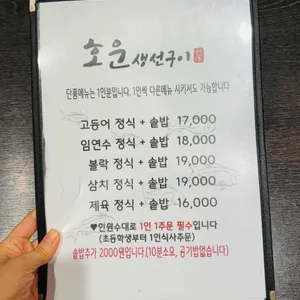 호운 생선구이
단품메뉴는 1인분입니다. 1인씩 다른메뉴 시키셔도 가능합니다
고등어 정식 + 솥밥 17,000
임연수 정식 + 솥밥 18,000
볼락 정식 + 솥밥 19,000
삼치 정식 + 솥밥 19,000
제육 정식 + 솥밥 16,000
♥인원수대로 1인 1주문 필수입니다
(초등학생부터 1인식사주문)
솥밥추가 2000원입니다.(10분소요, 공기밥없습니다)